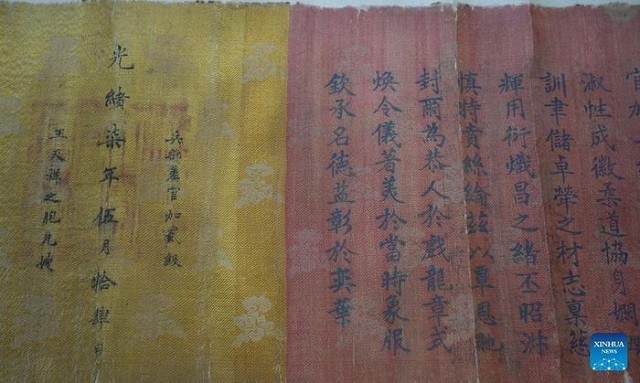 淑性成徽柔道協身嫻
訓聿儲卓犖之材志稟慈
輝用衍熾昌之緒丕昭淋
慎特賁絲綸茲以覃恩貤
封爾為恭人於戲龍章式
煥令儀著美於當時象服
欽承名德益彰於奕葉
兵部蕙官加貳級
光緒柒年伍月拾肆日
王天祥之胞兄嫂
XINHUA
NEWS